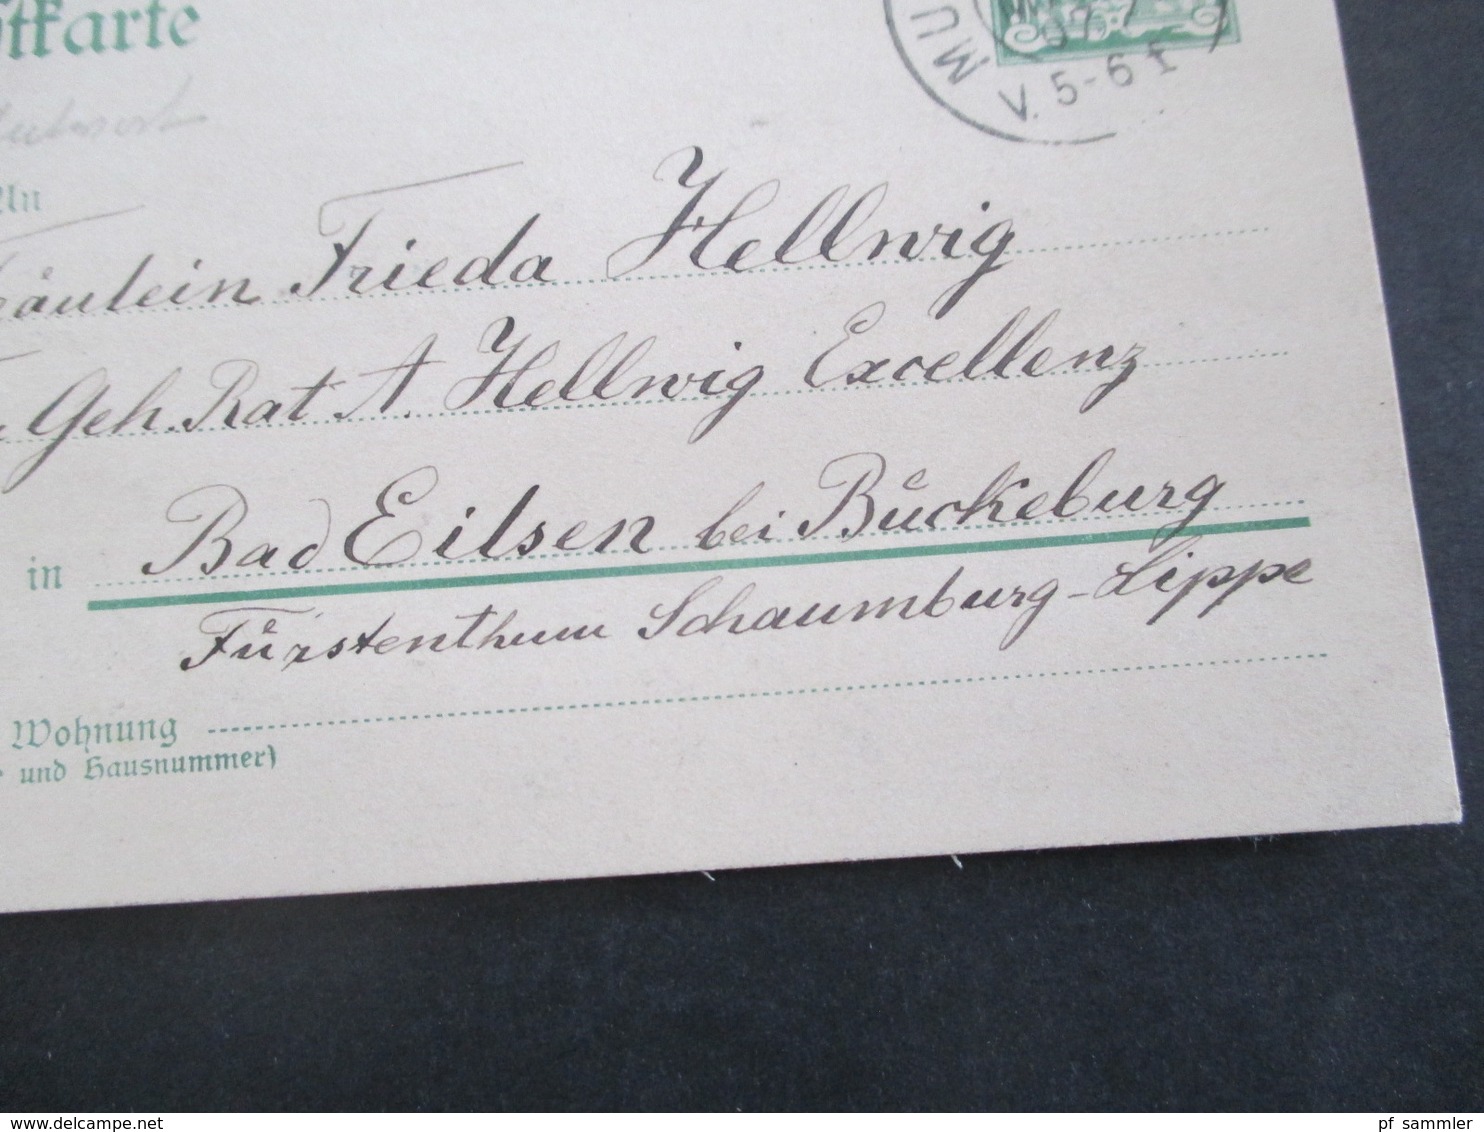 MÜ
07. 7
V. 5-6 f
An
Frieda Hellwig
Geh. Rat A. Hellwig Excellenz
in Bad Eilsen bei Bückeburg
Fürstenthum Schaumburg-Lippe
Wohnung
und Hausnummer)
pf_sammler